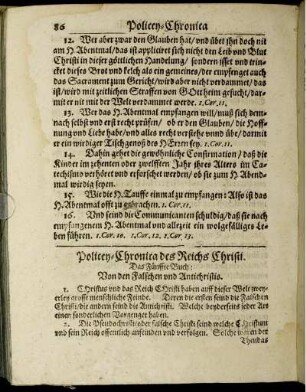 80 Policey-Chronica
12. Wer aber zwar den Glauben hat/ und übet ihn doch nit
am H Abentmal/ das ist appliciret sich nicht den Leib und Blut
Christi in dieser göttlichen Handelung/ sondern isset und trin-
cket dieses Brot und Kelch als ein gemeines/ der empfenget auch
das Sacrament zum Gericht/ wird aber nicht verdammet/ das
ist/ wird mit zeitlichen Straffen von GOtt heim gesucht/ dar-
mit er nit mit der Welt verdammet werde. 1. Cor. 11.
13. Wer das H. Abentmal empfangen will/ muß sich dem-
nach selbst und erst recht prüfen/ ob er den Glauben/ die Hoff-
nung und Liebe habe/ und alles recht verstehe unnd übe/ darmit
er ein wirdiger Tischgenoß des HErren sey. 1. Cor. 11.
14. Dahin gehet die gewöhnliche Confirmation/ daß die
Kinder im zehenten oder zwelfften Jahr ihres Alters im Ca-
techismo verhöret und erforschet werden/ ob sie zum H Abend-
mal wirdig seyen.
15. Wie die H. Tauffe einmal zu empfangen: Also ist das
H. Abentmal offt zu gebrachen. 1. Cor. 11.
16. Und seind die Communicanten schuldig/ daß sie nach
empfangenem H. Abentmal und allezeit ein wolgefälliges Le-
ben führen. 1. Cor. 10. 1. Cor. 12. 1. Cor. 13.
Policey-Chronica des Reichs Christi.
Das Fünffte Buch:
Von den Falschen und Antichristis.
1. CHristus und das Reich CHristi haben auff dieser Welt zwey-
erley grosse menschliche Feinde. Deren die ersten seind die Falschen
Christi/ die andern seind die Antichristi. Welche beyderseits jeder Art
einer sonderlichen Vorzeuger haben.
2. Die Pseudochristi oder falsche Christi seind welche Christum
und sein Reich offentlich anfeinden und verfolgen. Solche der
Theudas